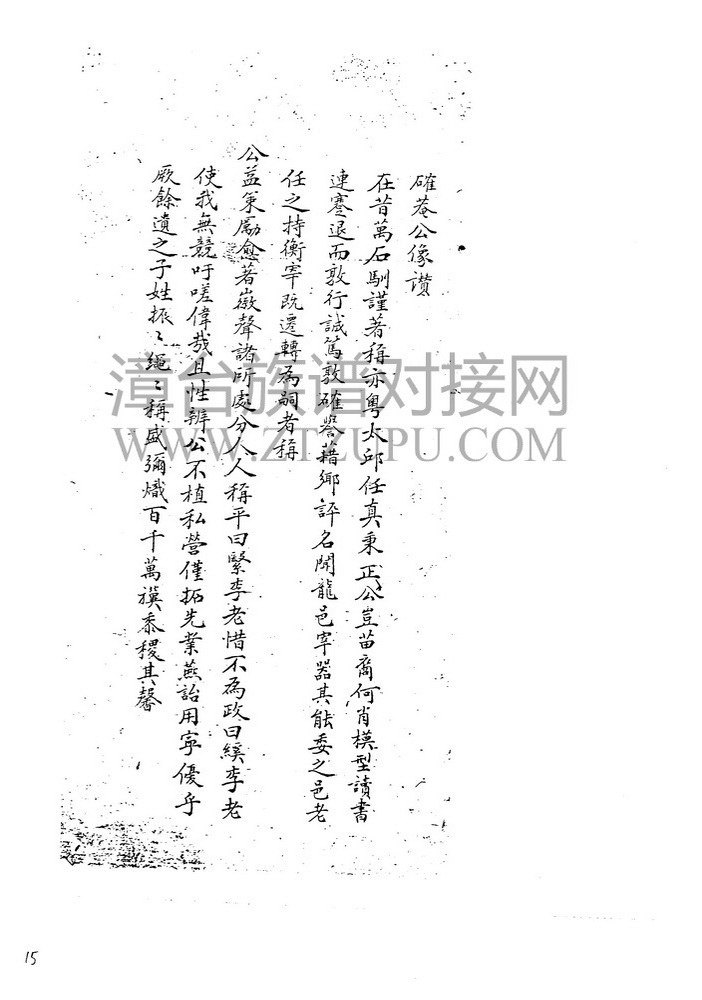 確菴公像讃
在昔萬石馴謹著稱亦粤太邱任真秉正公豈苗裔何肖模型讀書
連蹇退而敦行誠篤敦確譽藉鄉評名聞龍邑宰器其能委之邑老
任之持衡宰既遷轉為嗣者稱
公益策勵愈著徽聲諸所處分人人稱平曰緊李老惜不為政曰緱李老
使我無競吁嗟偉哉且性辨公不植私營僅拓先業燕詒用寧優乎
厥餘遺之子姓振〻繩〻稱盛彌熾百千萬襈黍稷其馨
漳台族谱对接网
WWW.ZTZUPU.COM
15